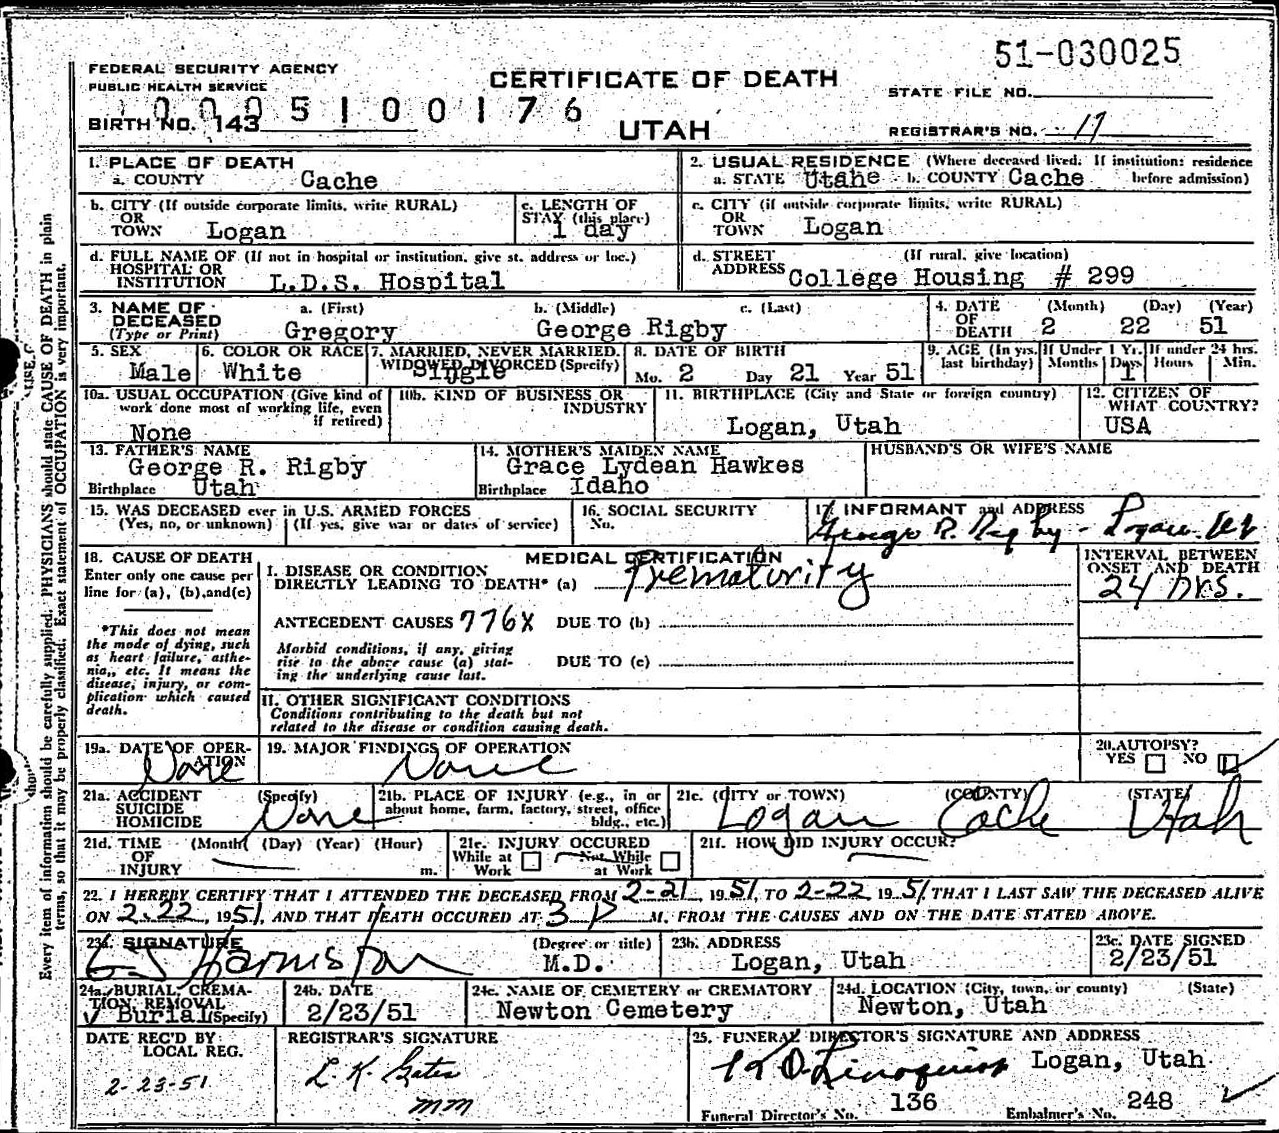 51-030025
FEDERAL SECURITY AGENCY
PUBLIC HEALTH SERVICE
CERTIFICATE OF DEATH
STATE FILE NO.
0005100176
BIRTH NO. 143
UTAH
REGISTRAR'S NO. 17
Every item of information should be carefully supplied. PHYSICIANS should state CAUSE OF DEATH in plain
terms, so that it may be properly classified. Exact statement of OCCUPATION is very important.
1. PLACE OF DEATH
a. COUNTY Cache
2. USUAL RESIDENCE (Where deceased lived. If institution: residence
a. STATE Utahe b. COUNTY Cache before admission)
b. CITY (If outside corporate limits, write RURAL)
OR
TOWN Logan
c. LENGTH OF
STAY (this place)
1 day
c. CITY (if outside corporate limits, write RURAL)
OR
TOWN Logan
d. FULL NAME OF (If not in hospital or institution, give st. address or loc.)
HOSPITAL OR
INSTITUTION L.D.S. Hospital
d. STREET (If rural, give location)
ADDRESS College Housing # 299
3. NAME OF a. (First) b. (Middle) c. (Last)
DECEASED
(Type or Print) Gregory George Rigby
4. DATE (Month) (Day) (Year)
OF
DEATH 2 22 51
5. SEX
Male
6. COLOR OR RACE
White
7. MARRIED, NEVER MARRIED,
WIDOWED, DIVORCED (Specify)
Single
8. DATE OF BIRTH
Mo. 2 Day 21 Year 51
9. AGE (In yrs. last birthday)
If Under 1 Yr.
Months Days
1
If under 24 hrs.
Hours Min.
10a. USUAL OCCUPATION (Give kind of
work done most of working life, even
if retired)
None
10b. KIND OF BUSINESS OR
INDUSTRY
11. BIRTHPLACE (City and State or foreign country)
Logan, Utah
12. CITIZEN OF
WHAT COUNTRY?
USA
13. FATHER'S NAME
George R. Rigby
Birthplace Utah
14. MOTHER'S MAIDEN NAME
Grace Lydean Hawkes
Birthplace Idaho
HUSBAND'S OR WIFE'S NAME
15. WAS DECEASED ever in U.S. ARMED FORCES
(Yes, no, or unknown) (If yes, give war or dates of service)
16. SOCIAL SECURITY
No.
17. INFORMANT and ADDRESS
George R. Rigby - Logan, Ut
18. CAUSE OF DEATH
Enter only one cause per
line for (a), (b), and (c)
*This does not mean
the mode of dying, such
as heart failure, asthe-
nia, etc. It means the
disease, injury, or com-
plication which caused
death.
MEDICAL CERTIFICATION
I. DISEASE OR CONDITION
DIRECTLY LEADING TO DEATH* (a) Prematurity
ANTECEDENT CAUSES 776X DUE TO (b)
Morbid conditions, if any, giving
rise to the above cause (a) stat-
ing the underlying cause last.
DUE TO (c)
II. OTHER SIGNIFICANT CONDITIONS
Conditions contributing to the death but not
related to the disease or condition causing death.
INTERVAL BETWEEN
ONSET AND DEATH
24 hrs.
19a. DATE OF OPER-
ATION
None
19. MAJOR FINDINGS OF OPERATION
None
20. AUTOPSY?
YES NO
21a. ACCIDENT (Specify)
SUICIDE
HOMICIDE None
21b. PLACE OF INJURY (e.g., in or
about home, farm, factory, street, office
bldg., etc.)
21c. (CITY or TOWN) (COUNTY) (STATE)
Logan Cache Utah
21d. TIME (Month) (Day) (Year) (Hour)
OF
INJURY m.
21e. INJURY OCCURED
While at Not While
Work at Work
21f. HOW DID INJURY OCCUR?
22. I HEREBY CERTIFY THAT I ATTENDED THE DECEASED FROM 2-21 1951, TO 2-22, 1951, THAT I LAST SAW THE DECEASED ALIVE
ON 2-22, 1951, AND THAT DEATH OCCURED AT 3 P M. FROM THE CAUSES AND ON THE DATE STATED ABOVE.
23a. SIGNATURE (Degree or title)
M.D.
23b. ADDRESS
Logan, Utah
23c. DATE SIGNED
2/23/51
24a. BURIAL, CREMA-
TION REMOVAL
Burial (Specify)
24b. DATE
2/23/51
24c. NAME OF CEMETERY or CREMATORY
Newton Cemetery
24d. LOCATION (City, town, or county) (State)
Newton, Utah
DATE REC'D BY
LOCAL REG.
2-23-51
REGISTRAR'S SIGNATURE
L. K. Gates
mm
25. FUNERAL DIRECTOR'S SIGNATURE AND ADDRESS
Logan, Utah
Funeral Director's No. 136 Embalmer's No. 248